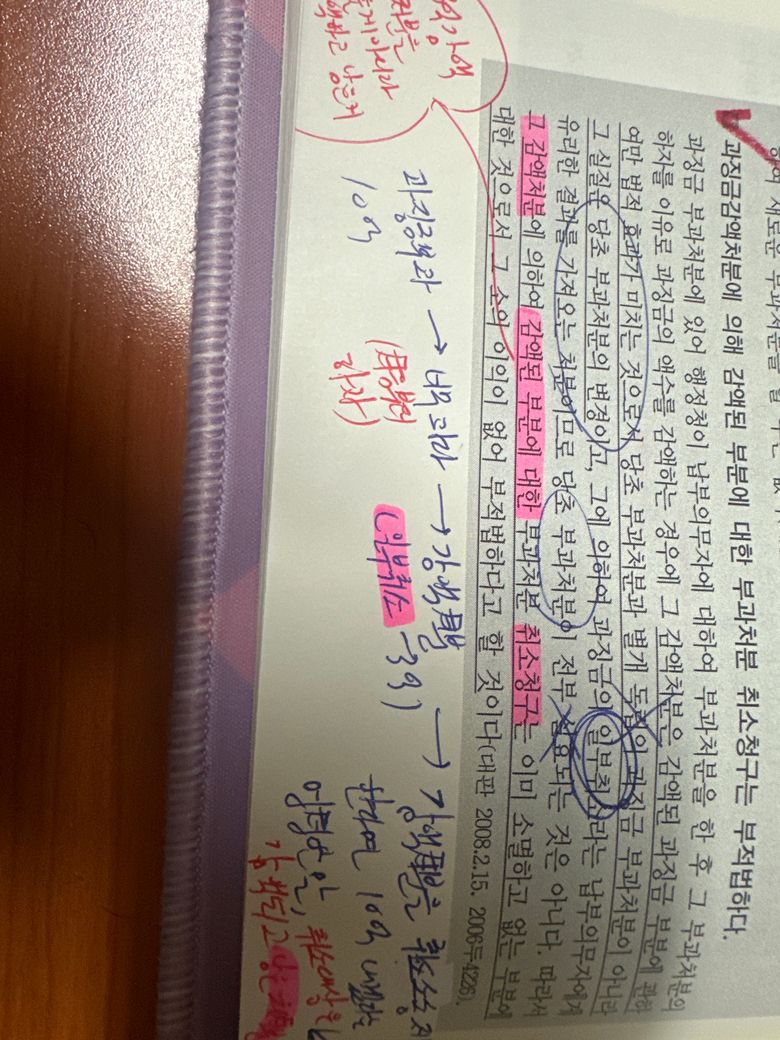 하여 새로운 부과처분을 할 수는 없
과징금감액처분에 의해 감액된 부분에 대한 부과처분 취소청구는 부적법하다.
과징금 부과처분에 있어 행정청이 납부의무자에 대하여 부과처분을 한 후 그 부과처분의
하자를 이유로 과징금의 액수를 감액하는 경우에 그 감액처분은 감액된 과징금 부분에 관하
여만 법적 효과가 미치는 것으로서 당초 부과처분과 별개 독립의 과징금 부과처분이 아니라
그 실질은 당초 부과처분의 변경이고, 그에 의하여 과징금의 일부취소라는 납부의무자에게
유리한 결과를 가져오는 처분이므로 당초 부과처분이 전부 실효되는 것은 아니다. 따라서
그 감액처분에 의하여 감액된 부분에 대한 부과처분 취소청구는 이미 소멸하고 없는 부분에
대한 것으로서 그 소의 이익이 없어 부적법하다고 할 것이다(대판 2008.2.15. 2006두4226).
과징금부과 → 너무 과다 → 감액처분 → 감액처분을 취소소송 제
10억
하자)
(일부취소 -3억)
한다면 10억
감액되고 남은